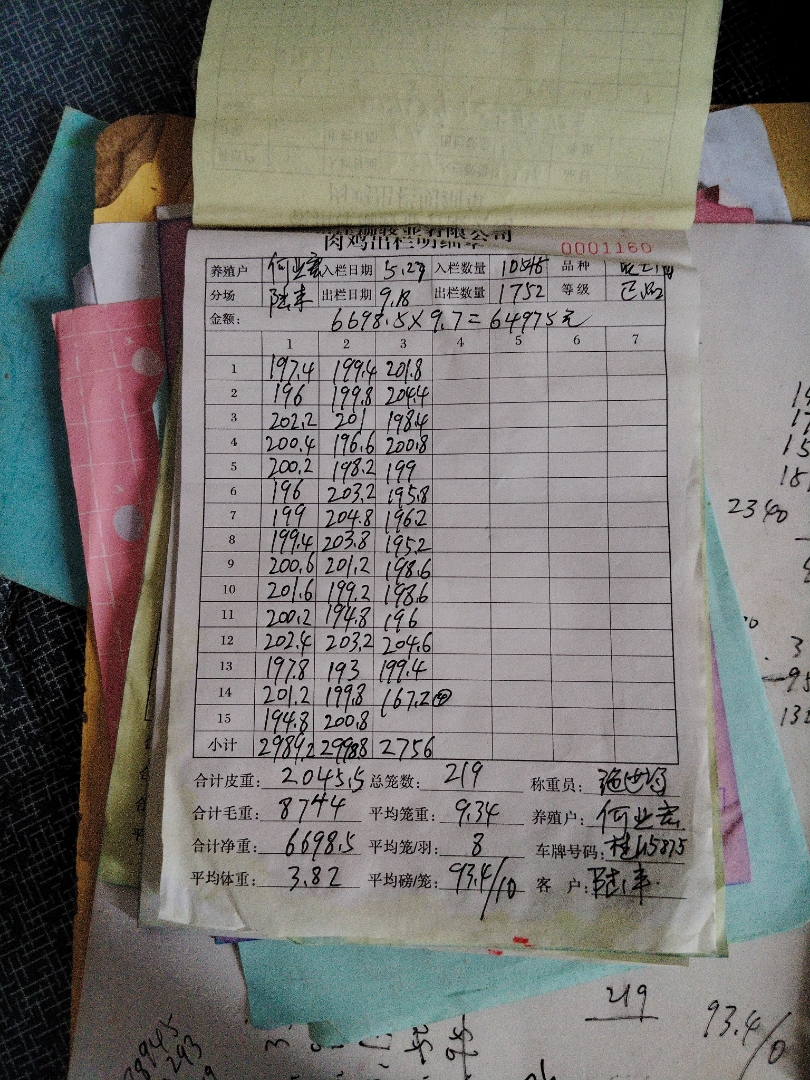 肉鸡出栏明细单
0001160
养殖户 何业宏 入栏日期 5.27 入栏数量 10545 品种
分场 陆丰 出栏日期 9.18 出栏数量 1752 等级 正品
金额: 6698.5×9.7=64975元
1 2 3 4 5 6 7
1 197.4 199.4 201.8
2 196 199.8 204.4
3 202.2 201 198.4
4 200.4 196.6 200.8
5 200.2 198.2 199
6 196 203.2 195.8
7 199 204.8 196.2
8 199.4 203.8 195.2
9 200.6 201.2 198.6
10 201.6 199.2 198.6
11 200.2 194.8 196
12 202.4 203.2 204.6
13 197.8 193 199.4
14 201.2 199.8 167.2
15 194.8 200.8
小计 2989.2 2998.8 2756
合计皮重: 2045.5 总笼数: 219 称重员:
合计毛重: 8744 平均笼重: 9.34 养殖户: 何业宏
合计净重: 6698.5 平均笼/羽: 8 车牌号码:
平均体重: 3.82 平均磅/笼: 93.4/10 客 户: 陆丰
2340
219
93.4/10